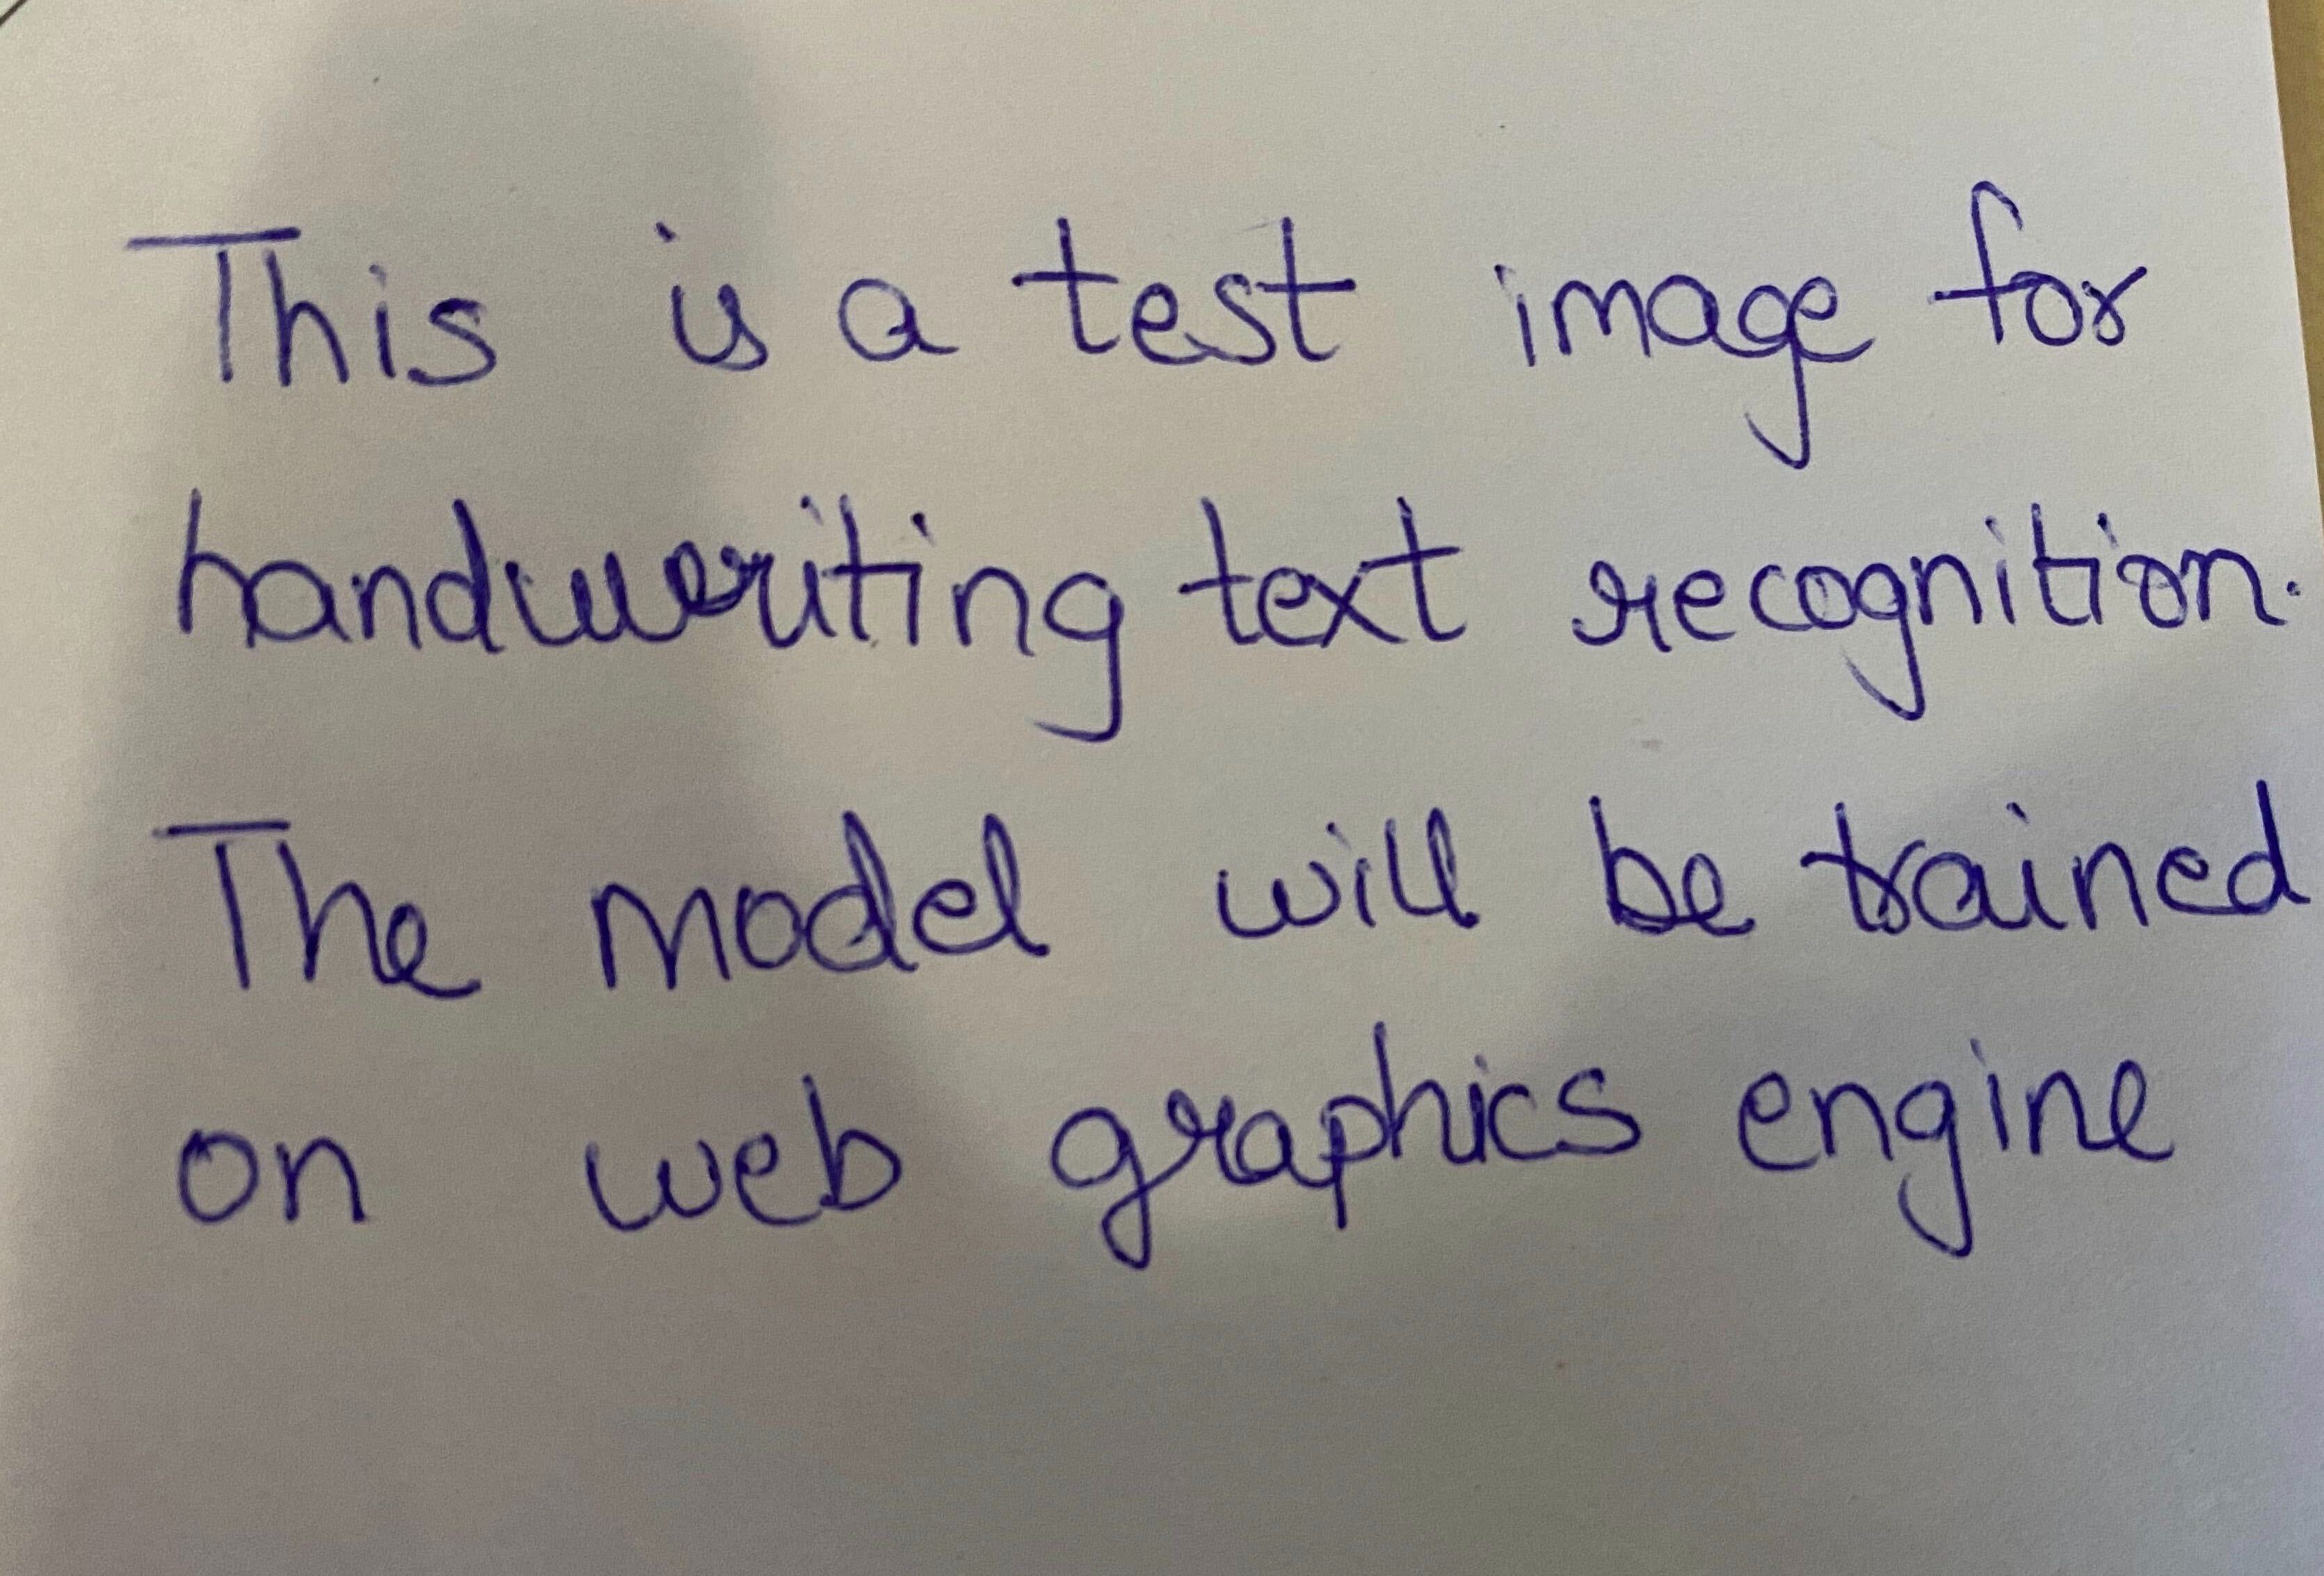 This is a test image for
handwriting text recognition.
The model will be trained
on web graphics engine